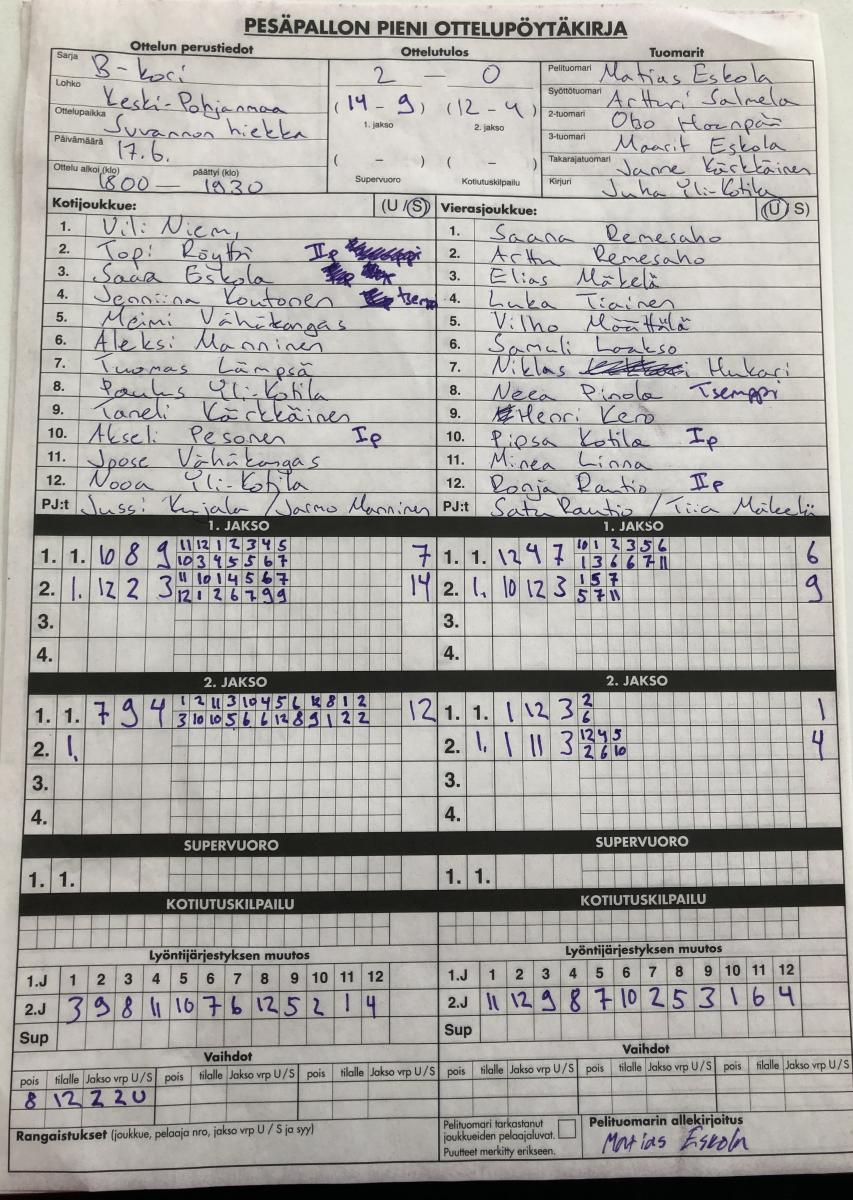 PESÄPALLON PIENI OTTELUPÖYTÄKIRJA
Ottelun perustiedot
Sarja B-kori
Lohko Keski-Pohjanmaa
Ottelupaikka Suvannon hiekka
Päivämäärä 17.6.
Ottelu alkoi (klo) 1800 — päättyi (klo) 1930
Ottelutulos
2 — 0
(14 - 9) (12 - 4)
1. jakso 2. jakso
( - ) ( - )
Supervuoro Kotiutuskilpailu
Tuomarit
Pelituomari Matias Eskola
Syöttötuomari Artturi Salmela
2-tuomari Haanpää
3-tuomari Maarit Eskola
Takarajatuomari Janne Kärkkäinen
Kirjuri Juha Yli-Kotila
Kotijoukkue: (U / S)
1. Vili Niemi
2. Topi Röytti IIp
3. Saara Eskola
4. Jenniina Koutonen tsemp
5. Meimi Vähäkangas
6. Aleksi Manninen
7. Tuomas Lämpsä
8. Paulus Yli-Kotila
9. Taneli Kärkkäinen
10. Akseli Pesonen Ip
11. Joose Vähäkangas
12. Nooa Yli-Kotila
PJ:t Jussi Kujala / Jarmo Manninen
Vierasjoukkue: (U / S)
1. Saana Remesaho
2. Arttu Remesaho
3. Elias Mäkelä
4. Luka Tiainen
5. Vilho Määttälä
6. Samuli Laakso
7. Niklas Hukari
8. Neea Pinola Tsemppi
9. Henri Kero
10. Pipsa Kotila Ip
11. Minea Linna
12. Ronja Rautio IIp
PJ:t Satu Rautio / Tiia Mäkelä
1. JAKSO
1. 1. 10 8 9 11 12 1 2 3 4 5 7
10 3 4 5 5 6 7
2. 1. 12 2 3 11 10 1 4 5 6 7 14
12 1 2 6 7 9 9
3.
4.
1. JAKSO
1. 1. 12 4 7 10 1 2 3 5 6 6
1 3 6 6 7 11
2. 1. 10 12 3 1 5 7 9
5 7 11
3.
4.
2. JAKSO
1. 1. 7 9 4 1 2 11 3 10 4 5 6 12 8 1 2 12
3 10 10 5 6 6 12 8 9 1 2 2
2. 1.
3.
4.
2. JAKSO
1. 1. 1 12 3 2 1
6
2. 1. 1 11 3 12 4 5 4
2 6 10
3.
4.
SUPERVUORO
1. 1.
SUPERVUORO
1. 1.
KOTIUTUSKILPAILU
KOTIUTUSKILPAILU
Lyöntijärjestyksen muutos
1.J 1 2 3 4 5 6 7 8 9 10 11 12
2.J 3 9 8 11 10 7 6 12 5 2 1 4
Sup
Lyöntijärjestyksen muutos
1.J 1 2 3 4 5 6 7 8 9 10 11 12
2.J 11 12 9 8 7 10 2 5 3 1 6 4
Sup
Vaihdot
pois tilalle Jakso vrp U / S pois tilalle Jakso vrp U / S pois tilalle Jakso vrp U / S
8 12 2 2 U
Vaihdot
pois tilalle Jakso vrp U / S pois tilalle Jakso vrp U / S pois tilalle Jakso vrp U / S
Rangaistukset (joukkue, pelaaja nro, jakso vrp U / S ja syy)
Pelituomari tarkastanut
joukkueiden pelaajaluvat.
Puutteet merkitty erikseen.
Pelituomarin allekirjoitus
Matias Eskola